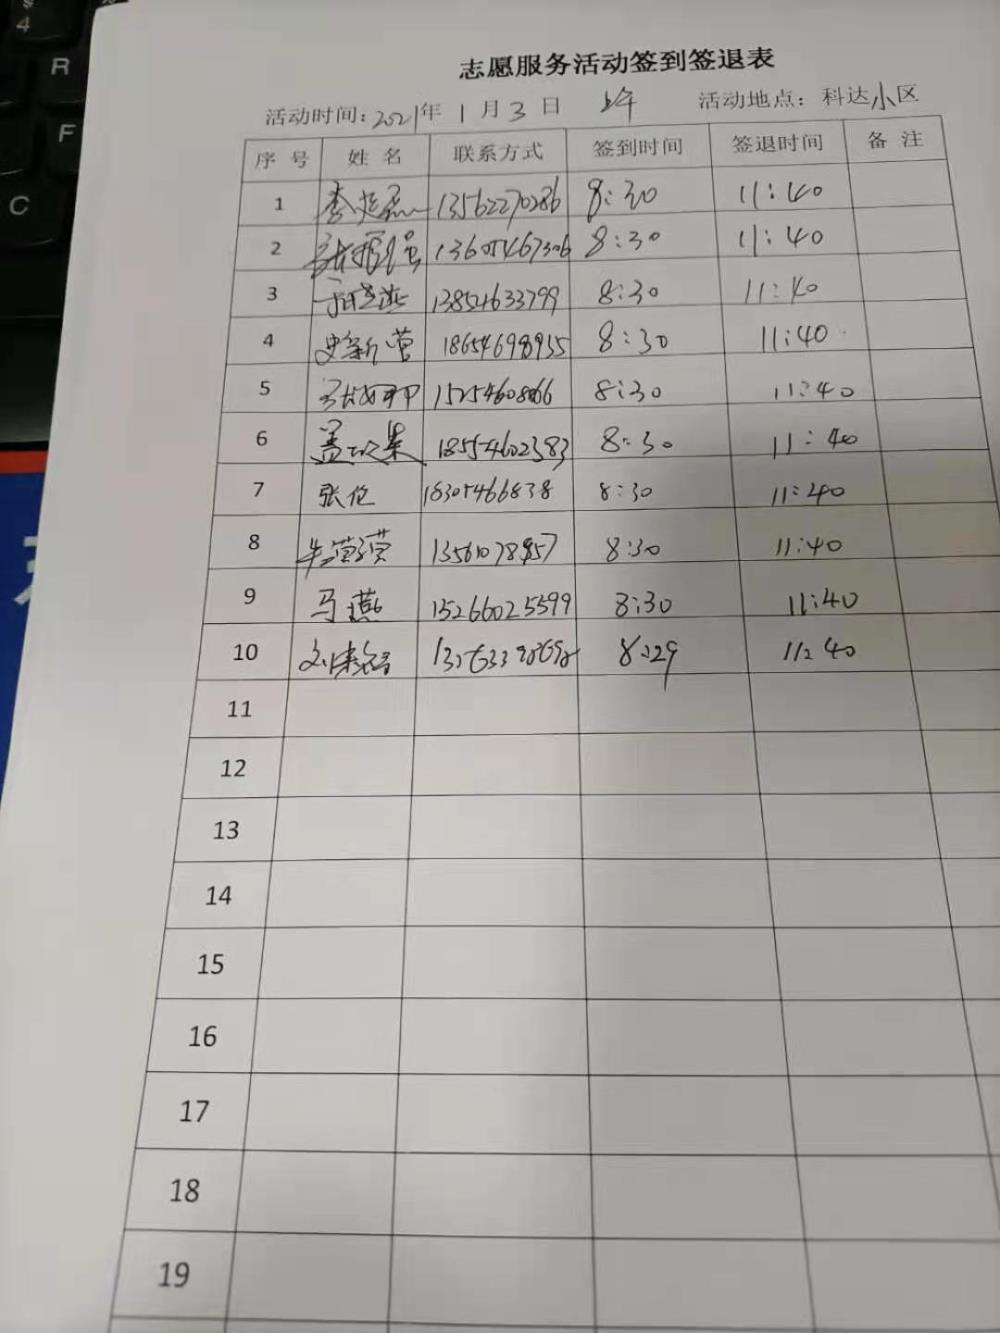 志愿服务活动签到签退表
活动时间：2021年 1 月 3 日 上午 活动地点：科达小区
序 号 姓 名 联系方式 签到时间 签退时间 备 注
1 李 13562270286 8:30 11:40
2 张 8:30 11:40
3 13854633799 8:30 11:40
4 史新营 18654698955 8:30 11:40
5 8:30 11:40
6 盖 18554602383 8:30 11:40
7 张伦 18305466838 8:30 11:40
8 牛 8:30 11:40
9 马燕 15266025599 8:30 11:40
10 刘 8:29 11:40
11
12
13
14
15
16
17
18
19
R
F
C
4